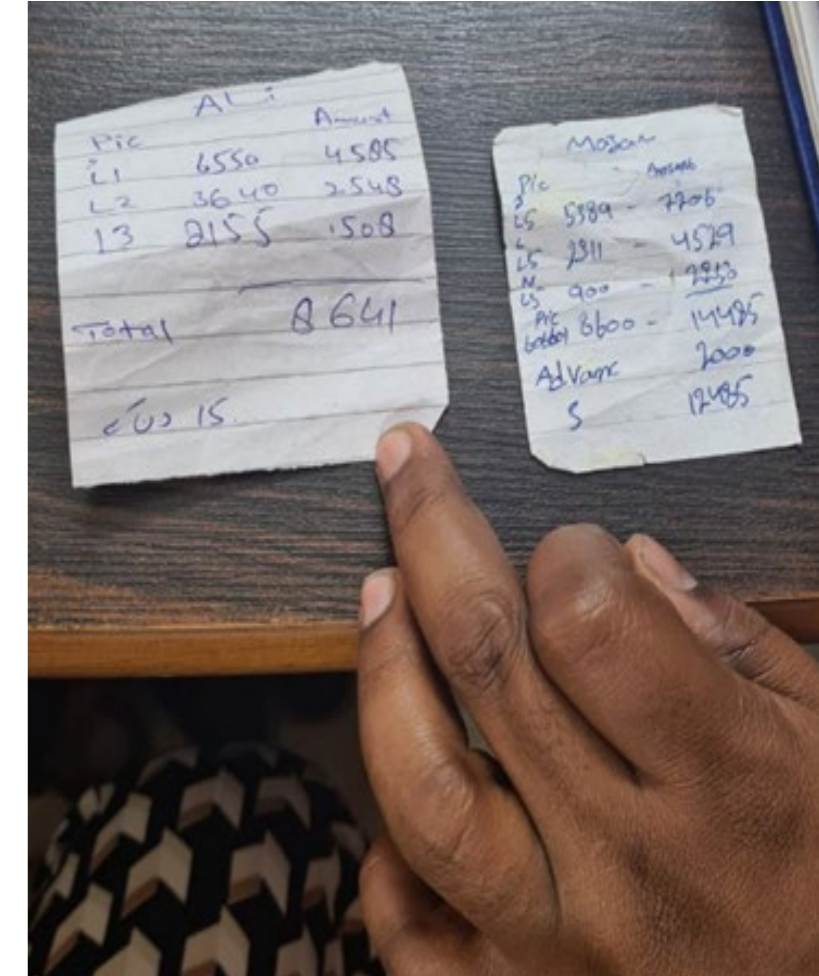 ALi
Pic Amount
L1 6550 4585
L2 3640 2548
L3 2155 1508
Total 8641
دن 15
Pic Amount
L5 5389 - 7206
L5 2311 - 4529
L5 900 -
Pic 8600 - 14485
Advanc 2000
S 12485